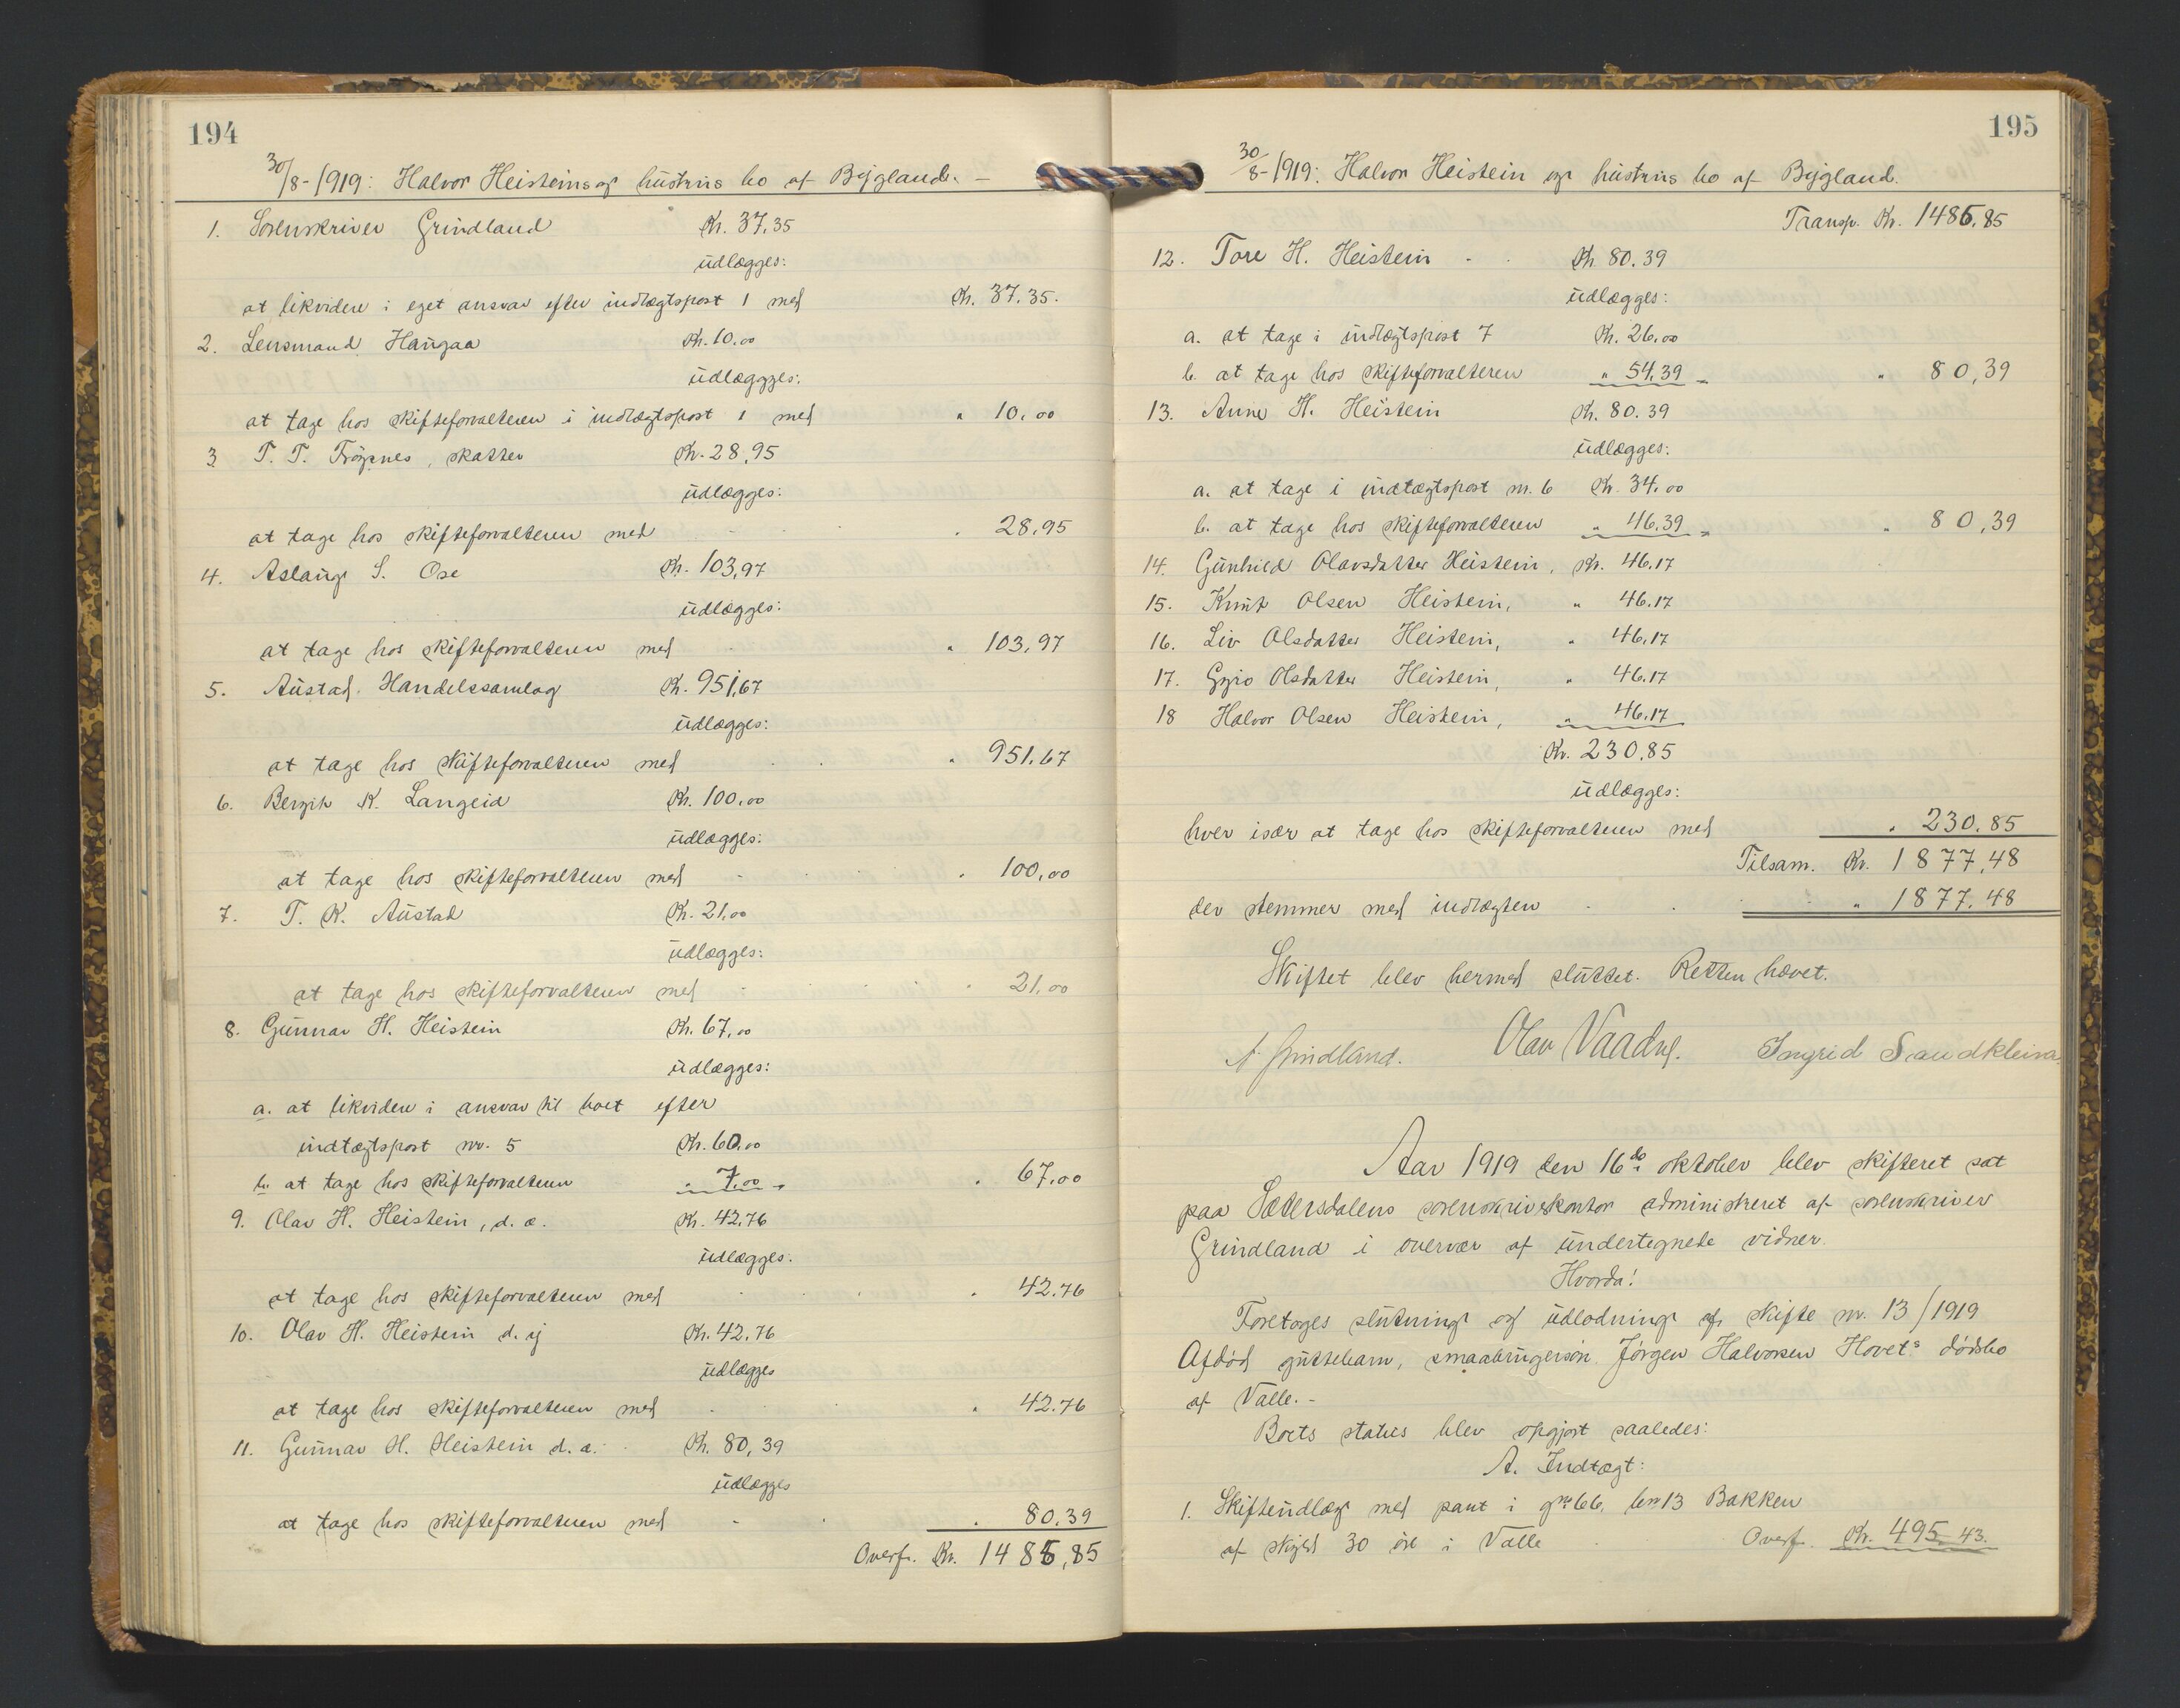 194
30/8-1919: Halvor Heisteins og hustrus bo af Bygland. –
1. Sorenskriver Grindland Kr. 37.35
udlægges:
at likvidere i eget ansvar efter indtægtspost 1 med Kr. 37.35.
2. Lensmand Haugaa Kr. 10.00
udlæggges:
at tage hos skifteforvalteren i indtægtspost 1 med " 10.00
3 T. T. Frøysnes, skatter Kr. 28,95
udlægges:
at tage hos skifteforvalteren med " 28,95
4. Aslaug S. Ose Kr. 103,97
udlægges:
at tage hos skifteforvalteren med " 103,97
5. Austad Handelssamlag Kr. 951,67
udlægges:
at tage hos skifteforvalteren med " 951,67
6. Bergit K. Langeid Kr. 100,00
udlægges:
at tage hos skifteforvalteren med " 100,00
7. T. K. Austad Kr. 21,00
udlægges:
at tage hos skifteforvalteren med " 21,00
8. Gunnar H. Heistein Kr. 67,00
udlægges:
a. at likvidere i ansvar til boet efter
indtægtspost nr. 5 Kr. 60,00
b. at tage hos skifteforvalteren " 7,00 = " 67,00
9. Olav H. Heistein, d. æ. Kr. 42,76
udlægges:
at tage hos skifteforvalteren med " 42.76
10. Olav H. Heistein d. y Kr. 42,76
udlægges
at tage hos skifteforvalteren med " 42.76
11. Gunnar H. Heistein d. æ. Kr. 80,39
udlægges
at tage hos skifteforvalteren med " 80.39
Overf. Kr. 1485,85
195
30/8-1919: Halvor Heistein og hustrus bo af Bygland.
Transp. Kr. 1485,85
12. Tore H. Heistein Kr 80.39
udlægges:
a. at tage i indtægtspost 7 Kr. 26,00
b. at tage hos skifteforvalteren " 54.39 = " 80,39
13. Anne H. Heistein Kr. 80.39
udlægges:
a. at tage i indtægtspost nr. 6 Kr. 34,00
b. at tage hos skifteforvalteren " 46,39 = " 80,39
14. Gunhild Olavsdatter Heistein, Kr. 46.17
15. Knut Olsen Heistein, " 46.17
16. Liv Olsdatter Heistein, " 46.17
17. Gyro Olsdatter Heistein, " 46.17
18 Halvor Olsen Heistein, " 46.17
Kr. 230,85
udlægges:
hver især at tage hos skifteforvalteren med " 230,85
Tilsam. Kr. 1877,48
der stemmer med indtægten " 1877,48
Skiftet blev hermed sluttet. Retten hævet.
A Grindland. Olav Ingrid Sandkleiva
Aar 1919 den 16de oktober blev skifteret sat
paa Sætersdalens sorenskriverkontor administreret af sorenskriver
Grindland i overvær af undertegnede vidner.
Hvorda!
Foretages slutning og udlodning af skifte nr. 13/1919
Afdød guttebarn, smaabrugersøn Jørgen Halvorsen Hovets dødsbo
af Valle. -
Boets status blev opgjort saaledes:
A. Indtægt:
1. Skifteudlæg med pant i gnr 66, bnr 13 Bakken
af skyld 30 øre i Valle Overf. Kr. 495,43.